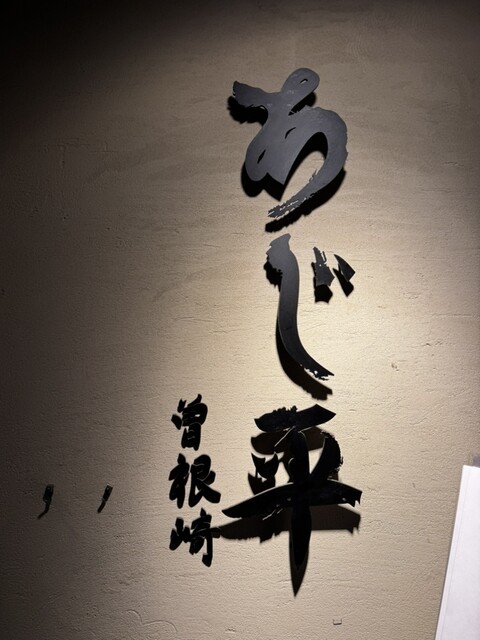 あじ平
曽根崎